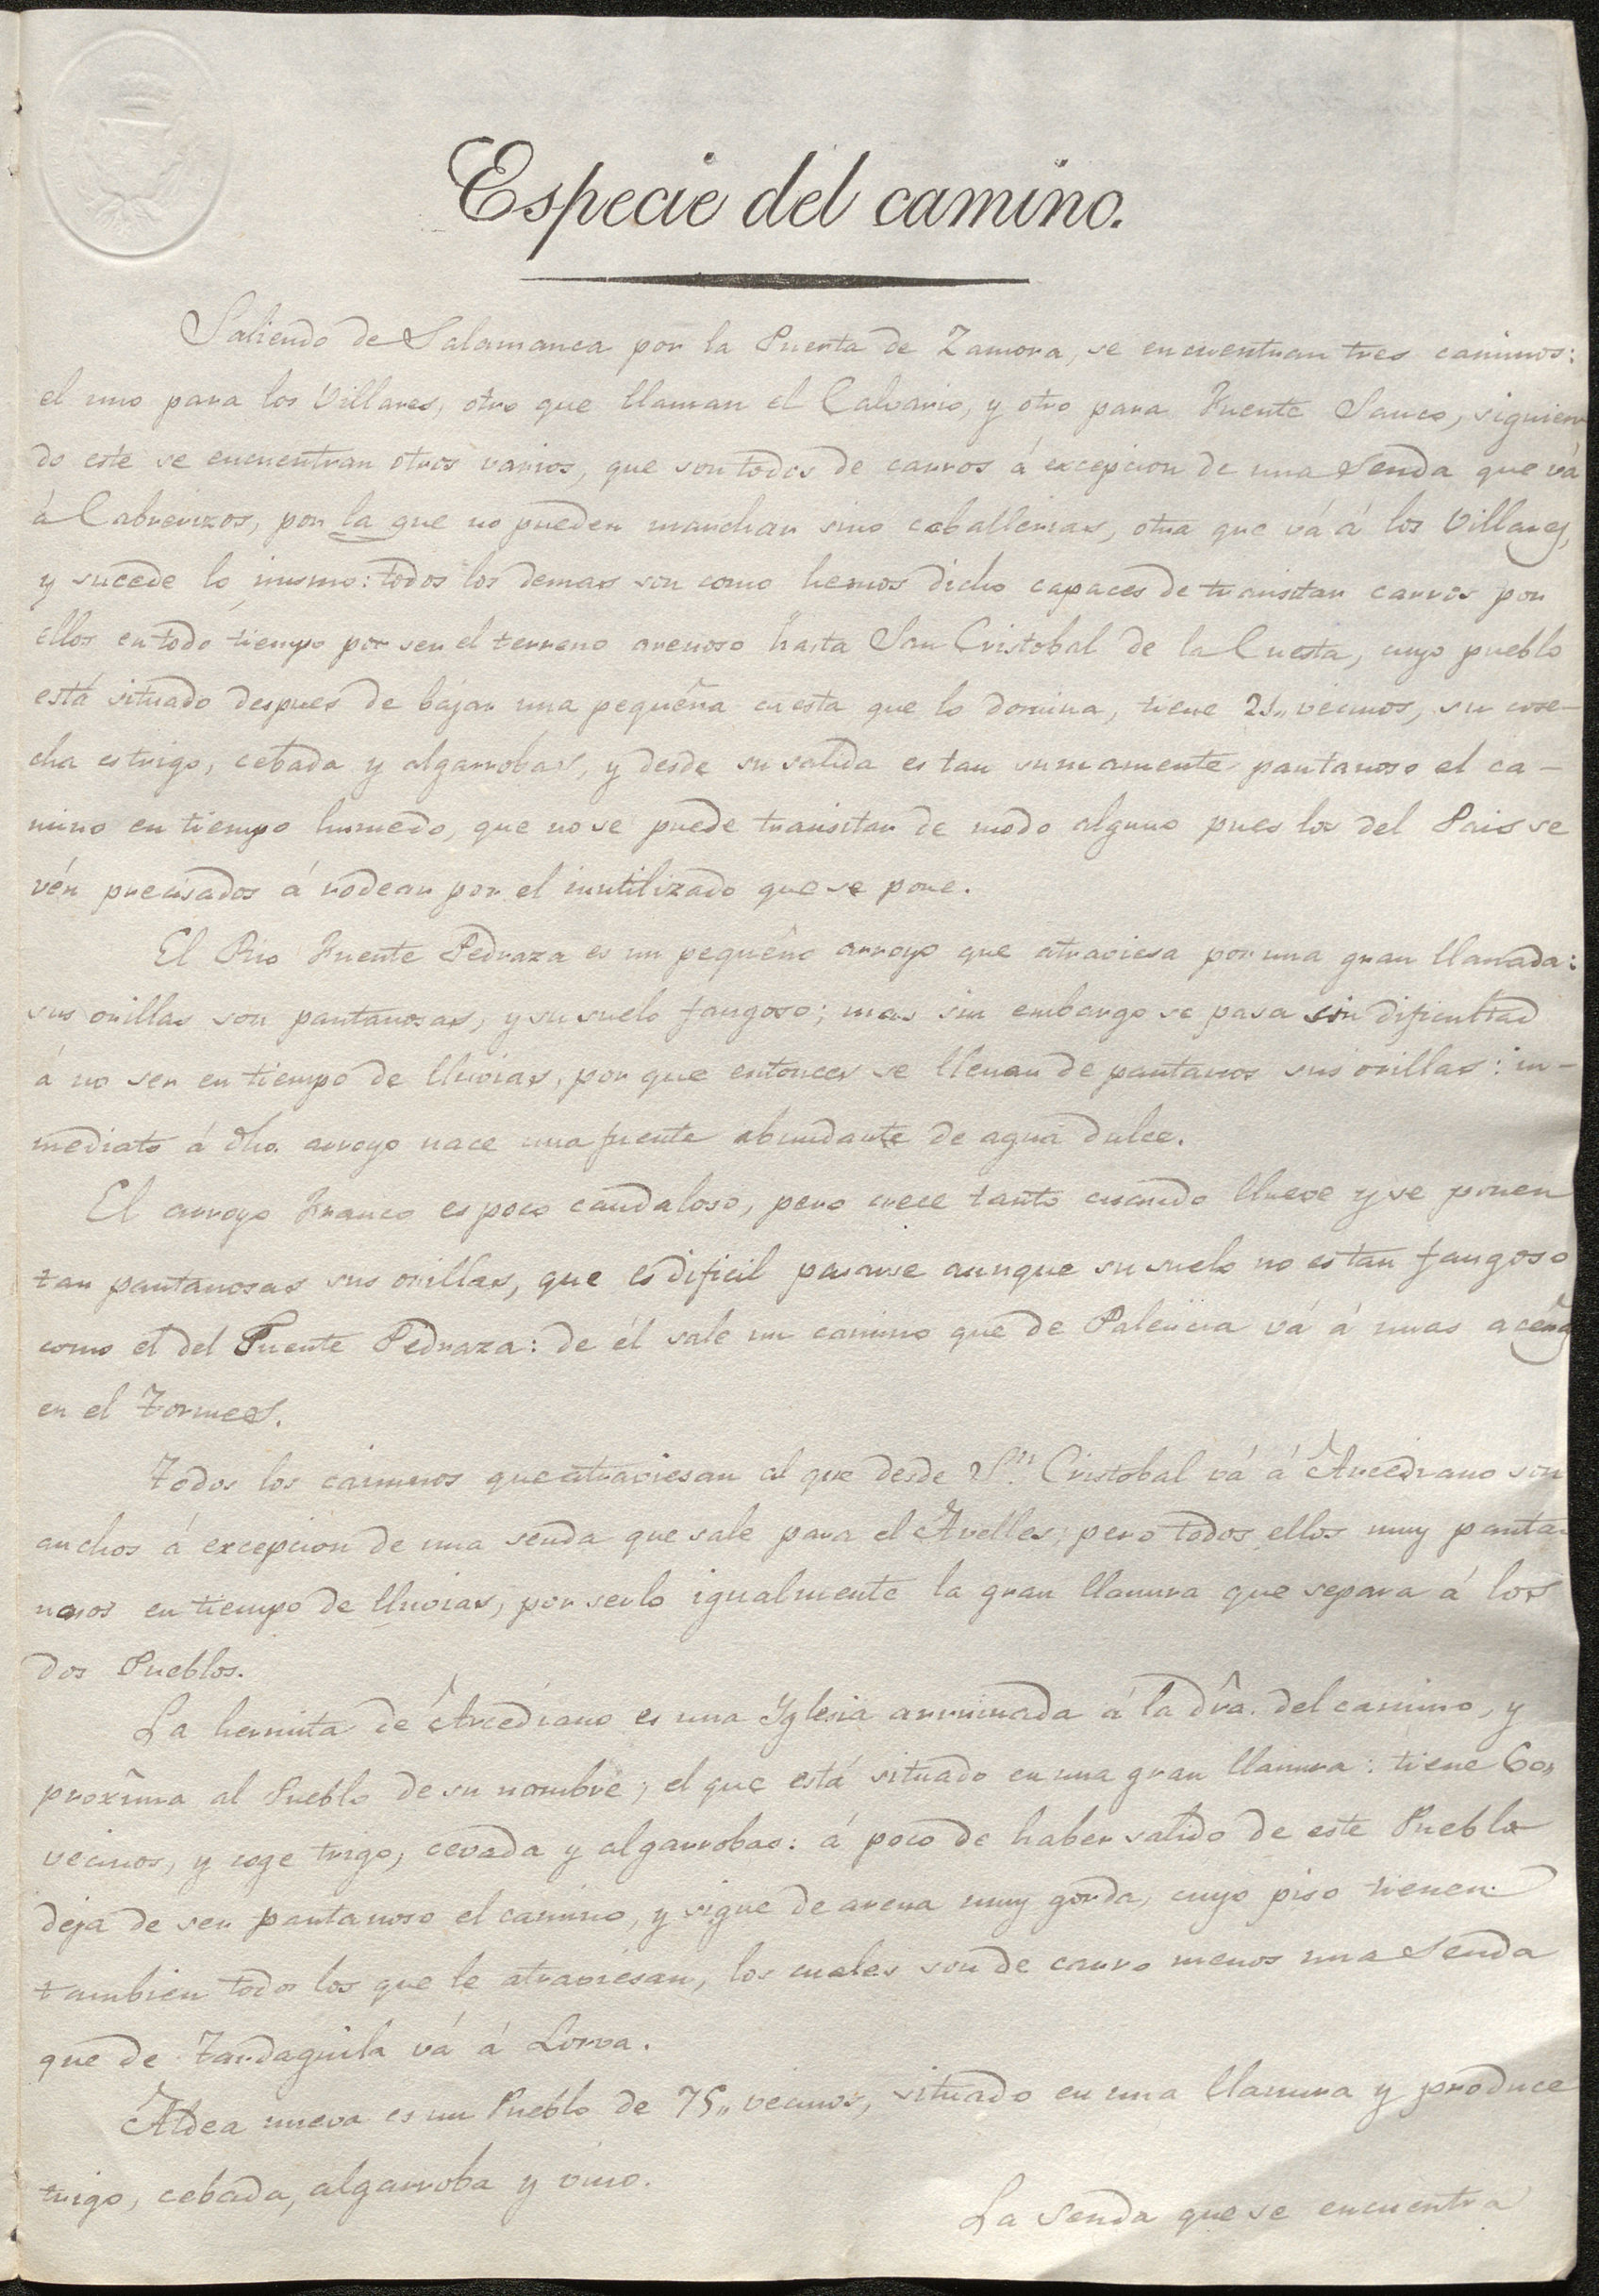 Especie del camino.
Saliendo de Salamanca por la Puerta de Zamora, se encuentran tres caminos:
el uno para los Villares, otro que llaman el Calvario, y otro para Fuente Sauco, siguien
do este se encuentran otros varios, que son todos de carros á excepcion de una Senda que vá
á Cabrerizos, por la que no pueden marchar sino caballerias, otra que vá á los Villares,
y sucede lo mismo: todos los demas son como hemos dicho capaces de transitar carros por
ellos en todo tiempo por ser el terreno arenoso hasta San Cristobal de la Cuesta, cuyo pueblo
está situado despues de bajar una pequeña cuesta que lo domina, tiene vecinos, su cose-
cha es trigo, cebada y algarrobas, y desde su salida es tan sumamente pantanoso el ca-
mino en tiempo humedo, que no se puede transitar de modo alguno pues los del Pais se
vén precisados á rodear por el inutilizado que se pone.
El Rio Fuente Pedraza es un pequeño arroyo que atraviesa por una gran llanada:
sus orillas son pantanosas, y su suelo fangoso; mas sin embargo se pasa sin dificultad
á no ser en tiempo de lluvias, por que entonces se llenan de pantanos sus orillas: in-
mediato á dho. arroyo nace una fuente abundante de agua dulce.
El arroyo Franco es poco caudaloso, pero crece tanto cuando llueve y se ponen
tan pantanosas sus orillas, que es dificil pasarse aunque su suelo no es tan fangoso
como el del Fuente Pedraza: de él sale un camino que de Palencia vá á unas aceñas
en el Tormes.
Todos los caminos que atraviesan al que desde Sn. Cristobal vá á Arcediano son
anchos á excepcion de una senda que sale para el Avelles; pero todos ellos muy panta-
nosos en tiempo de lluvias, por serlo igualmente la gran llanura que separa á los
dos Pueblos.
La hermita de Arcediano es una Yglesia arruinada á la dra. del camino, y
proxima al Pueblo de su nombre; el que está situado en una gran llanura: tiene 60,,
vecinos, y coge trigo, cevada y algarrobas: á poco de haber salido de este Pueblo
deja de ser pantanoso el camino, y sigue de arena muy gorda, cuyo piso tienen
tambien todos los que le atraviesan, los cuales son de carro menos una Senda
que de Tardaguila vá á Lorva.
Aldea nueva es un Pueblo de 75,, vecinos, situado en una llanura y produce
trigo, cebada, algarroba y vino.
La Senda que se encuentra